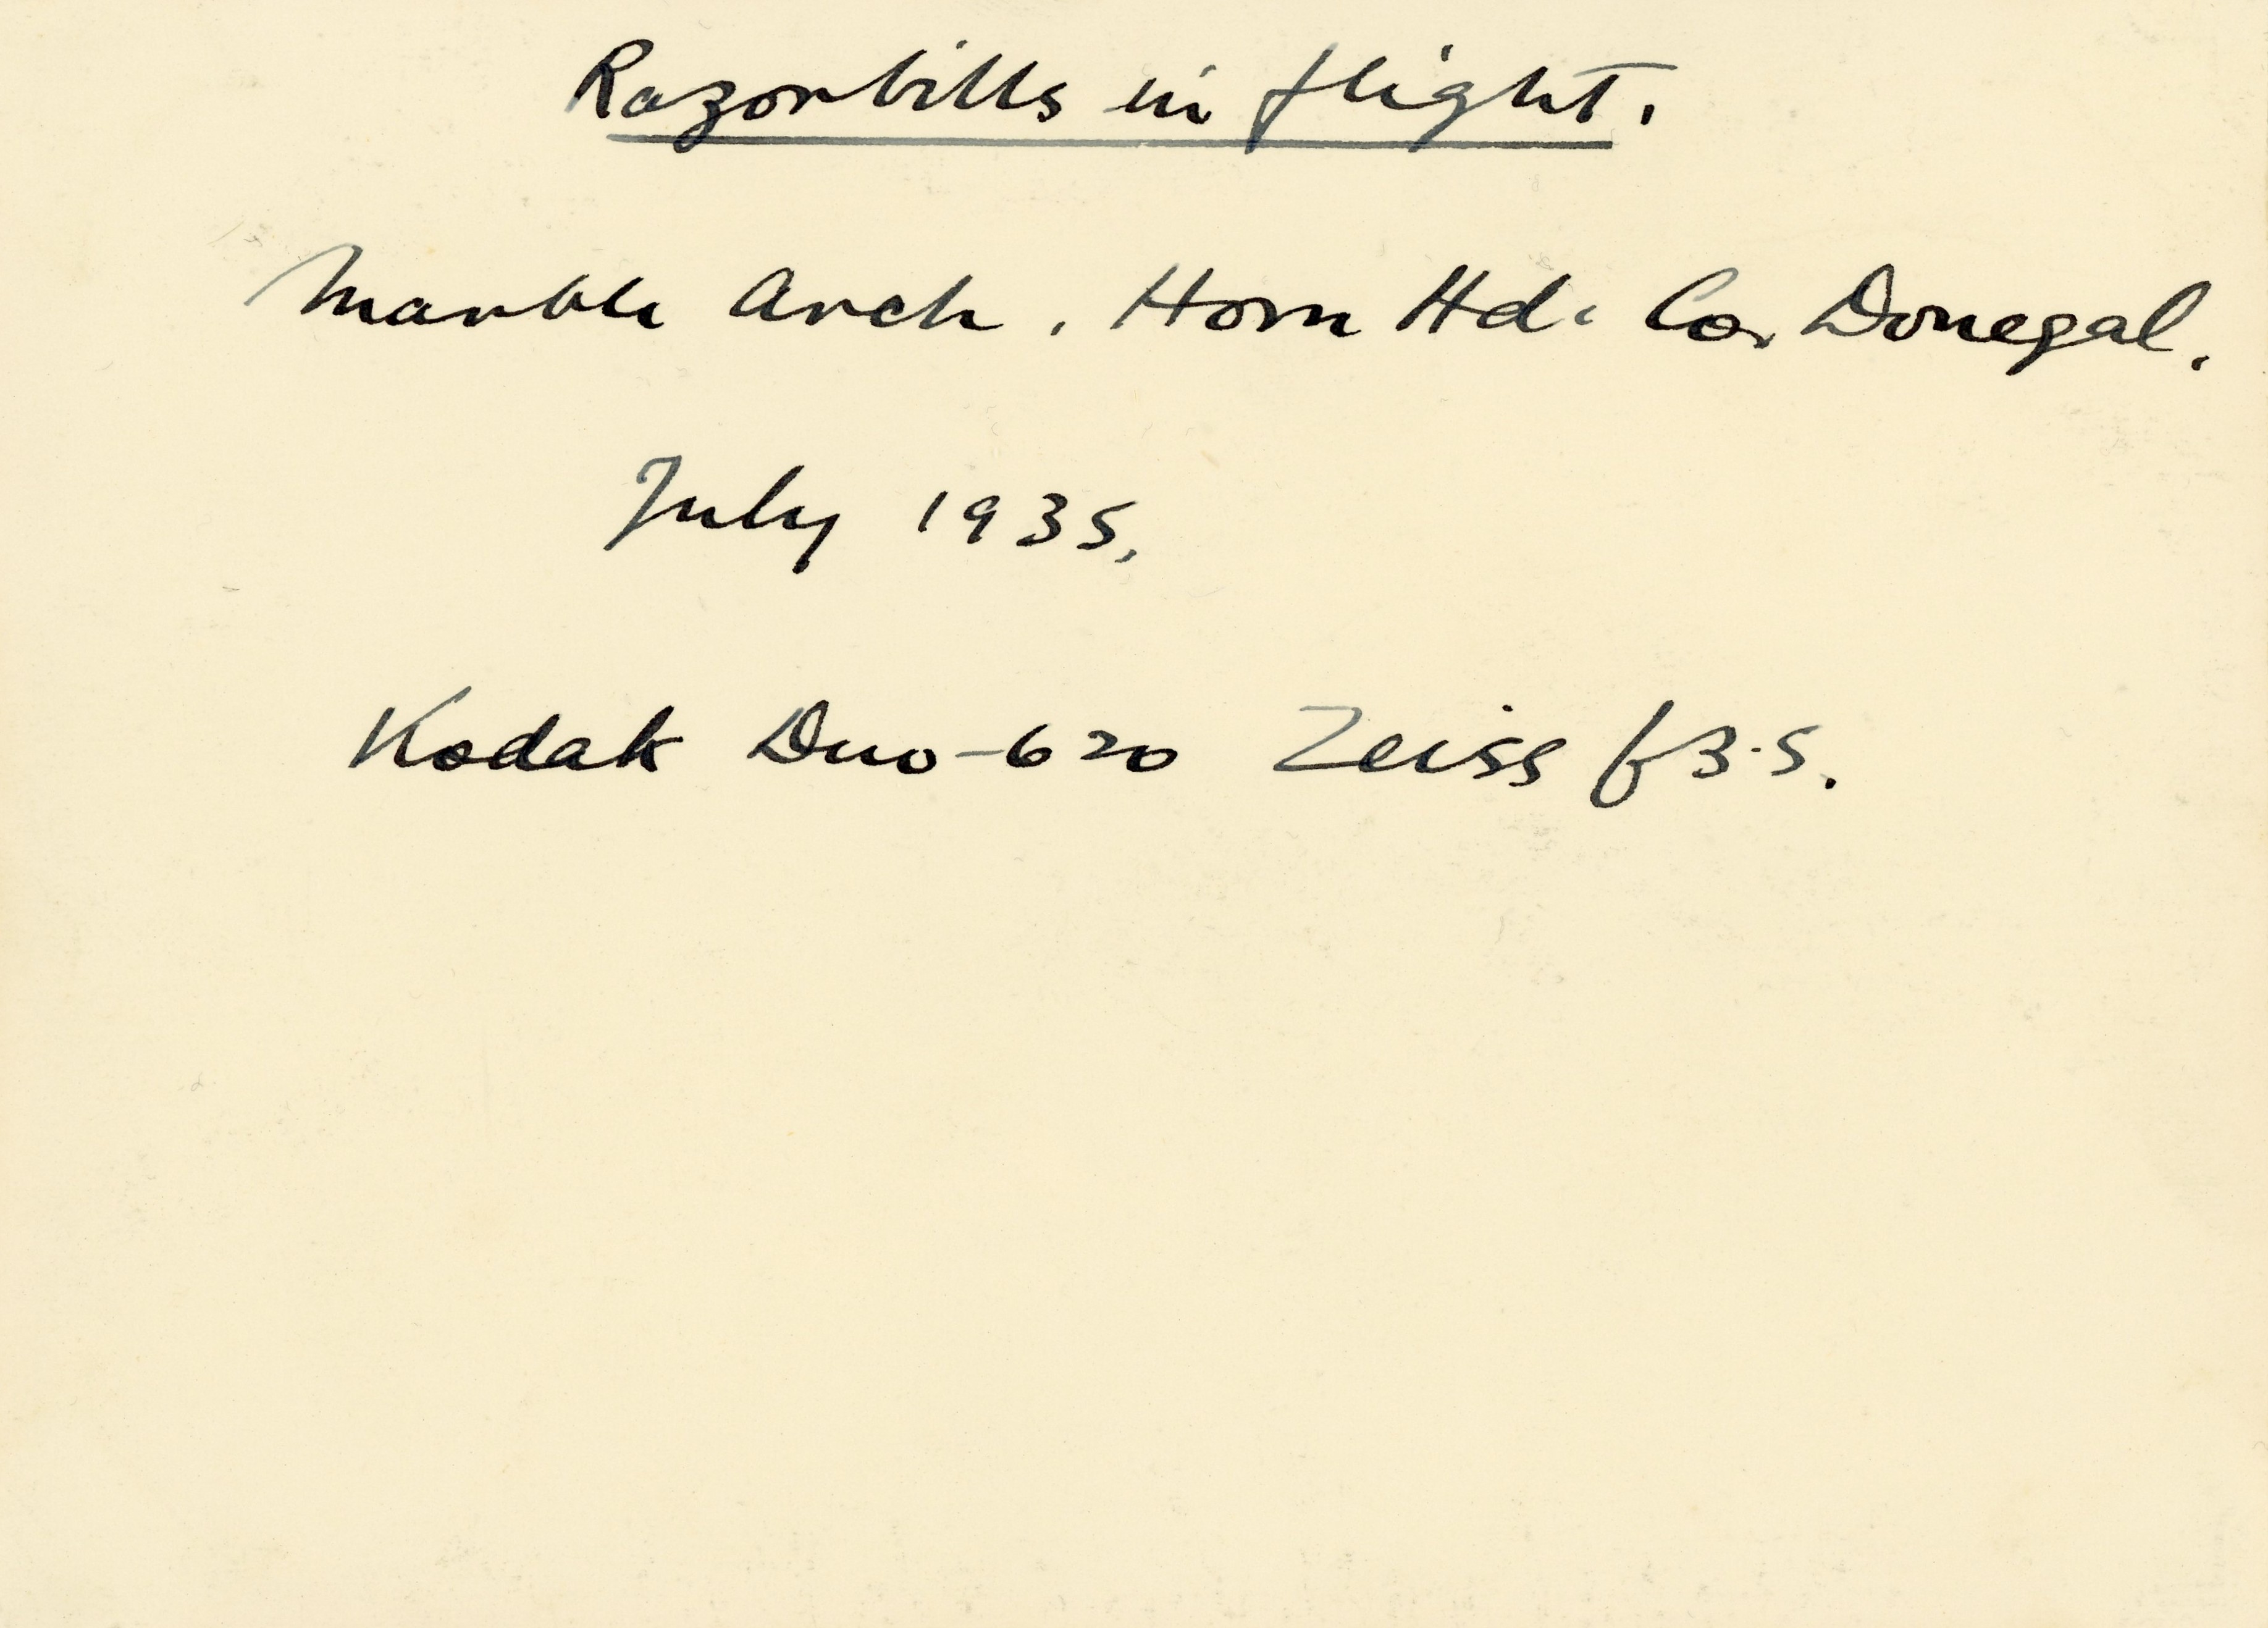 Razorbills in flight.
Marble Arch. Horn Hd. Co. Donegal.
July 1935.
Kodak Duo-620 Zeiss f3.5.